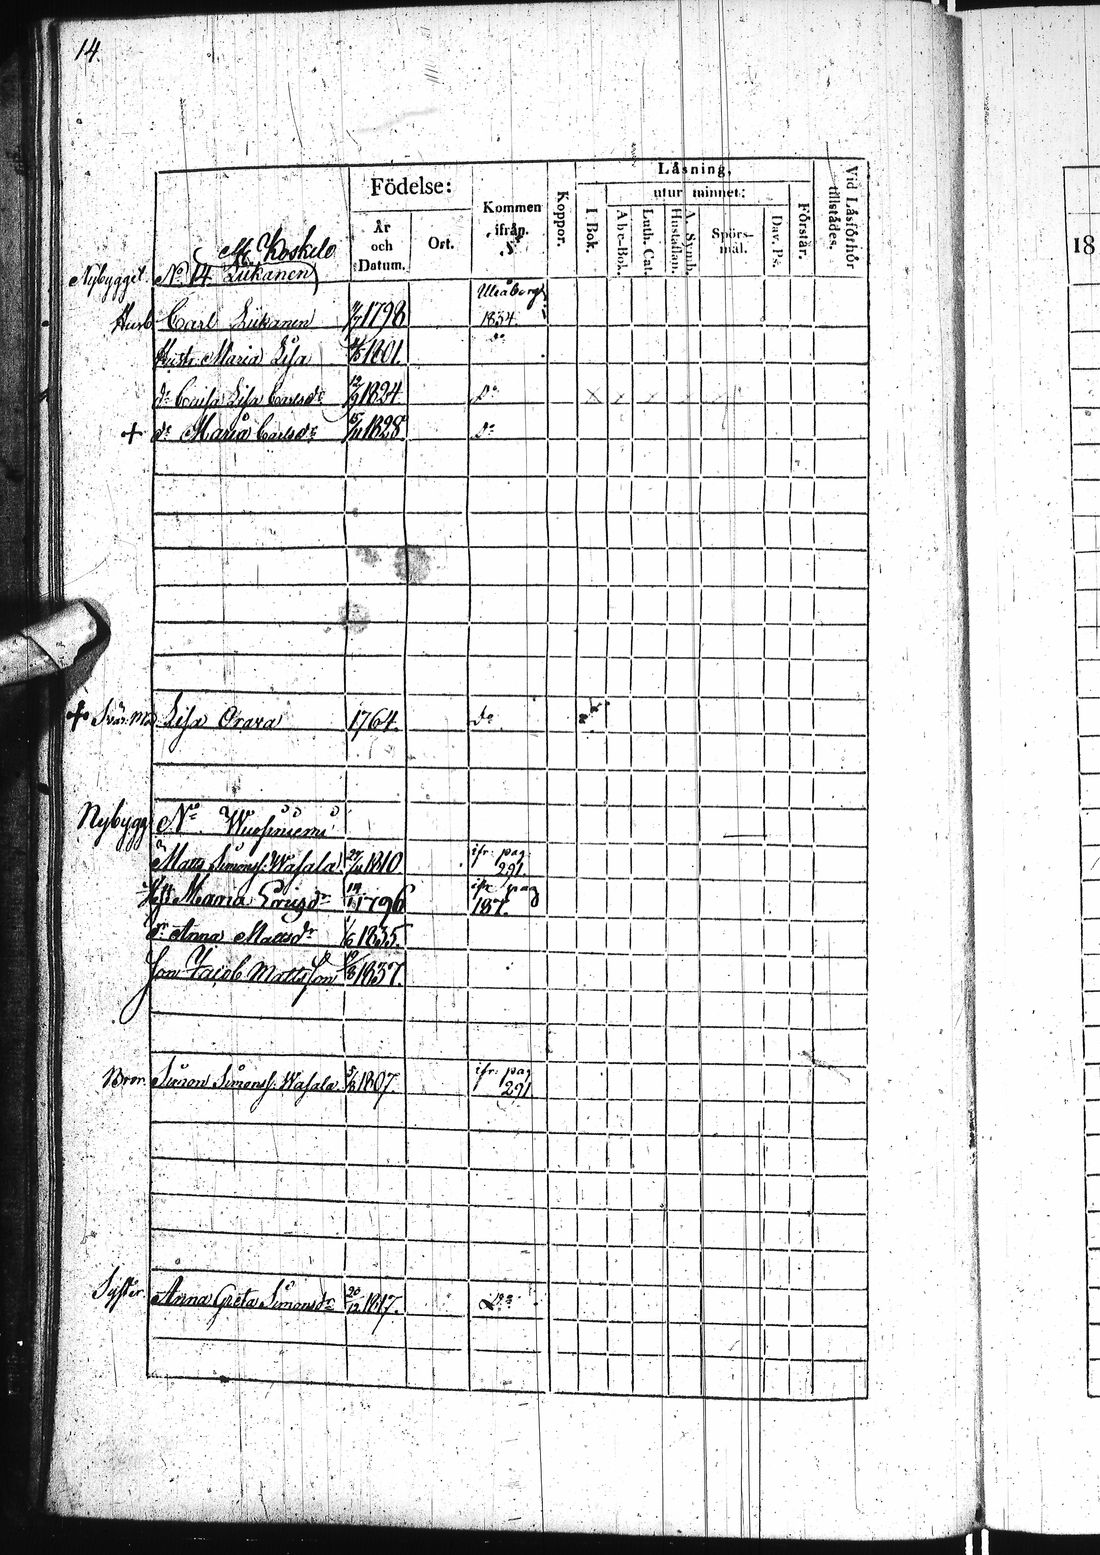 14.
Födelse:
År och Datum.
Ort.
Kommen ifrån.
Koppor.
Läsning,
I Bok.
utur minnet:
Abc-Bok.
Luth. Cat.
A. Symb. Hustaflan.
Spörsmål.
Dav. Ps.
Förstår.
Vid Läsförhör tillstädes.
18
Koskelo
Nybygget. No. 14. Liikanen
Uleåborg
Husb. Carl Liikanen 1798 1834
Hustr. Maria Lisa 1801. do
dr Caisa Lisa Carlsdr 12/9 1824 Do x
+ dr Maria Carlsdr 15/11 1828 do
+ Svär. Mod. Lisa Orava 1764. do
Nybygg No.
Matts Simonss. Wasala 1810 ifr. pag. 291
Maria 1796 ifr. pag 187.
dr Anna Mattsdr 1/6 1835.
Son Jacob Mattsson 1837.
Bror. Simon Simonss. Wasala. 1807. ifr. pag 291
Syster. Anna Greta Simonsdr 20/12 1817.